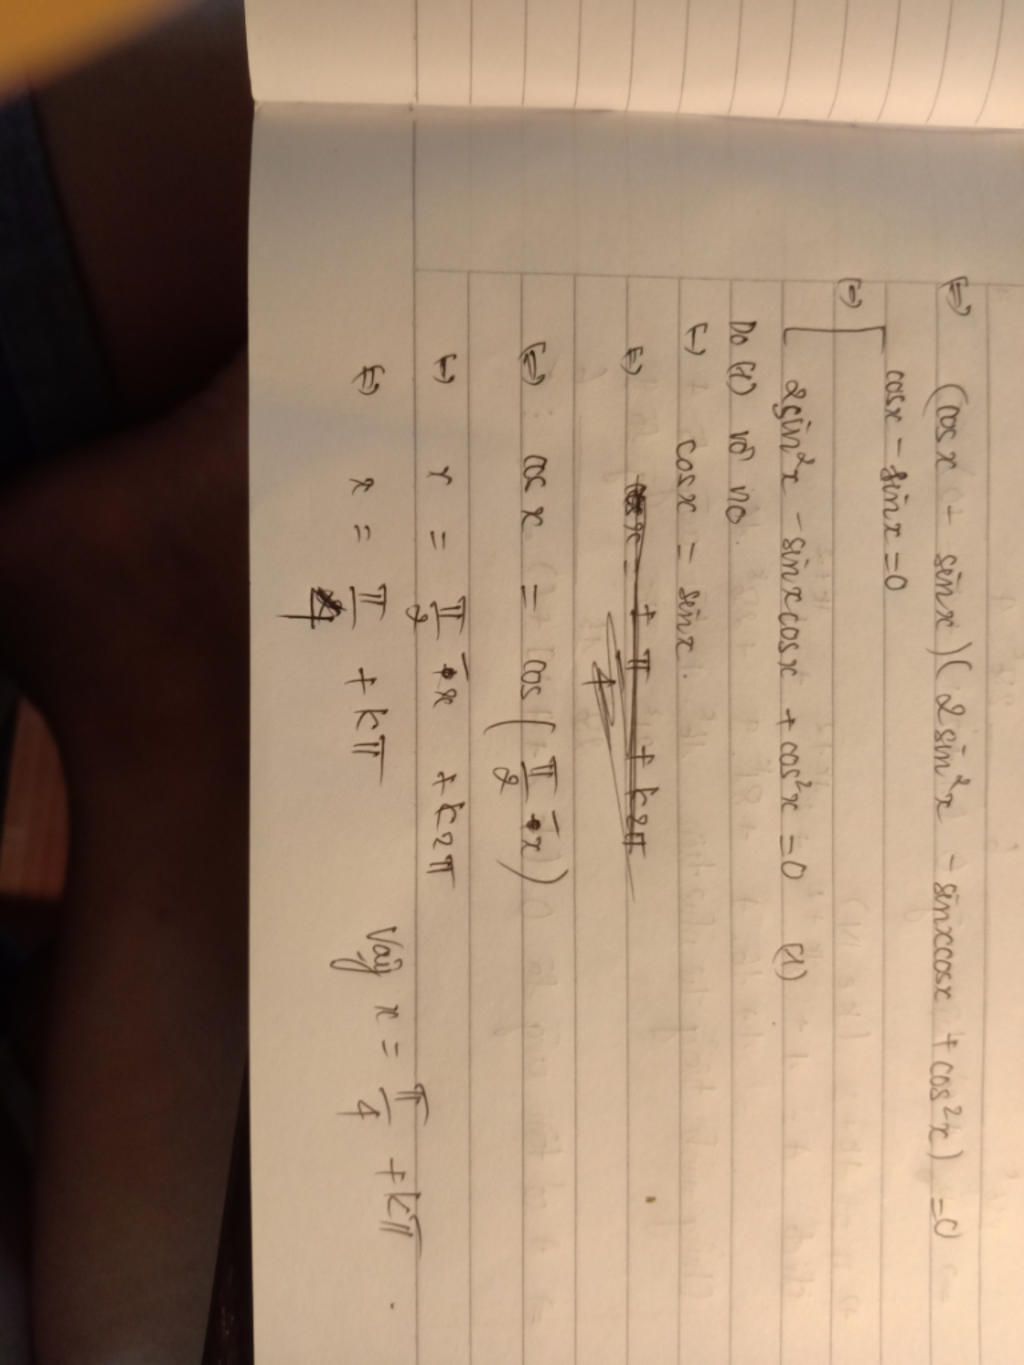 ⇔ (cosx - sinx)(2sin²x - sinxcosx + cos²x) = 0
cosx - sinx = 0
⇔ [
2sin²x - sinxcosx + cos²x = 0 (1)
Do (1) vô no.
⇔ cosx = sinx.
⇔
⇔ cos x = cos(π/2 - x)
⇔ x = π/2 - x + k2π
⇔ x = π/4 + kπ
Vậy x = π/4 + kπ.